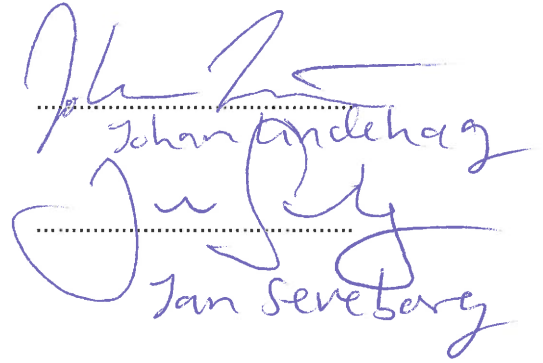 Johan Lindehag
Jan Severborg